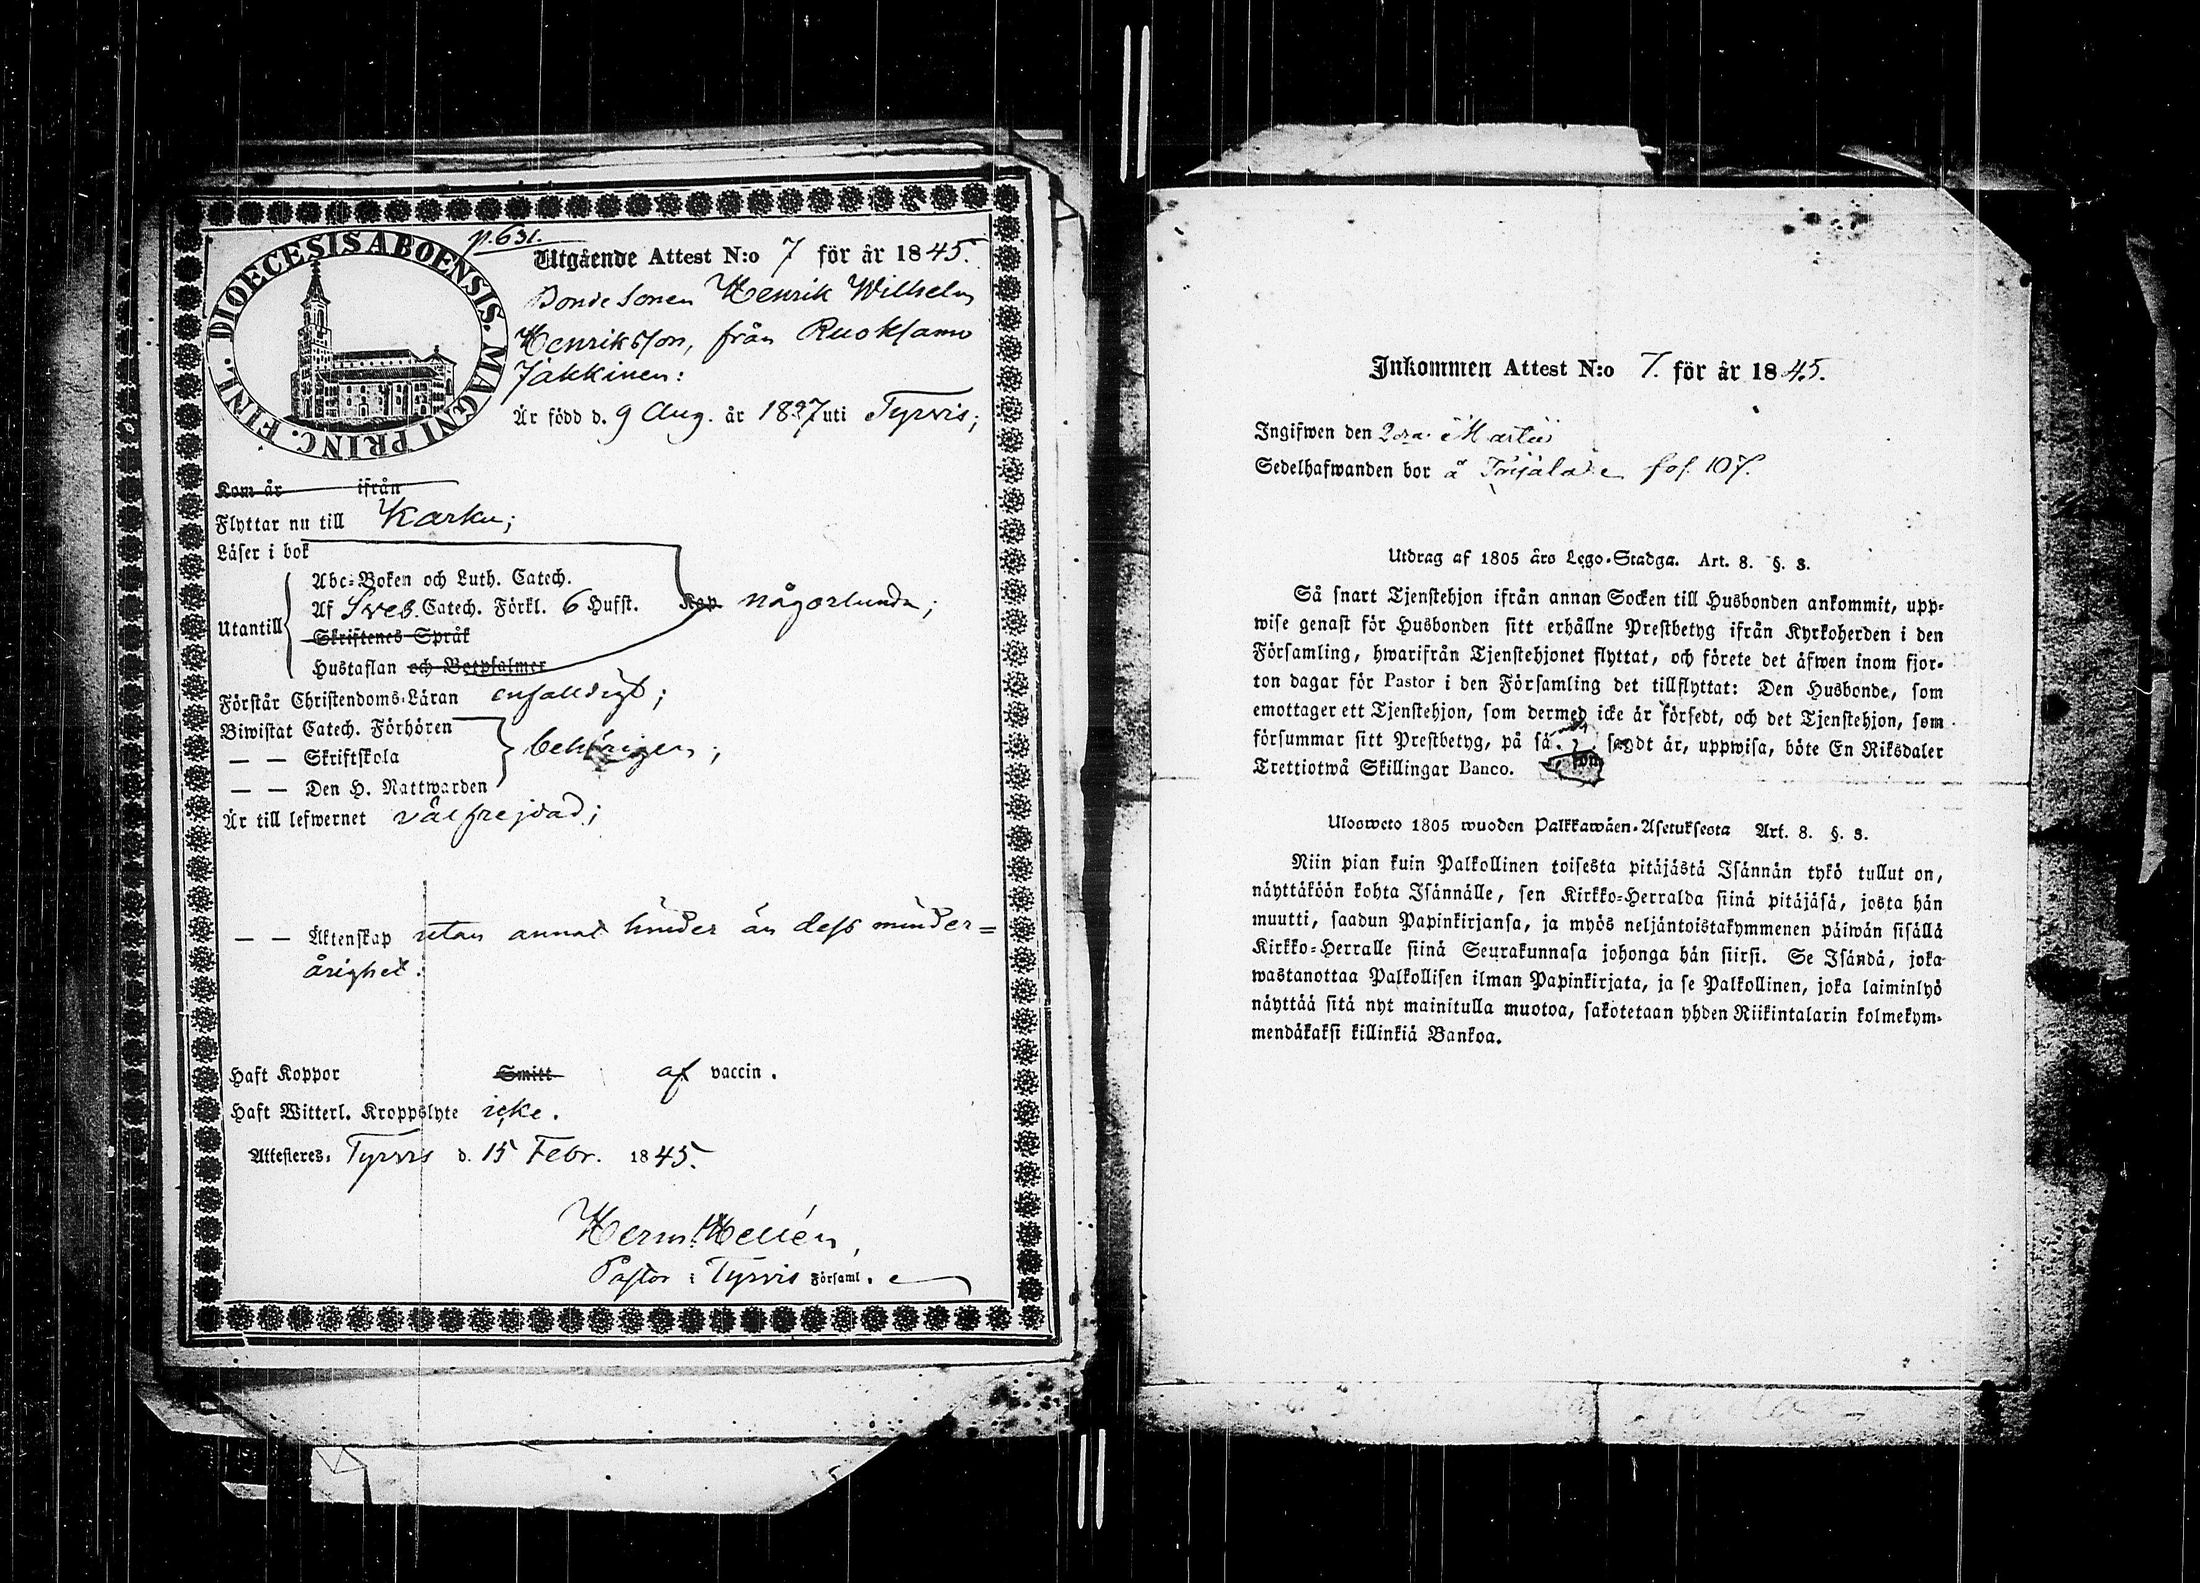 p. 631.
DIOECESIS ABOENSIS. MAGNI PRINC. FINL.
Utgående Attest N:o 7 för år 1845.
Bonde Sonen Henrik Wilhelm
Henriksson, från Ruoksamo
Jakkinen:
Är född d. 9 Aug. år 1827 uti Tyrvis;
Kom år ifrån
Flyttar nu till Karku;
Läser i bok
Abc-Boken och Luth. Catech.
Af Sveb. Catech. Förkl. 6 Hufst. Kap någorlunda;
Utantill
Skriftenes Språk
Hustaflan och Botpsalmer
Förstår Christendoms-Läran enfalldigt;
Biwistat Catech. Förhören
— — Skriftskola behörigen;
— — Den H. Nattwarden
Är till lefwernet välfrejdad;
— — Äktenskap utan annat hinder än dess minder=
årighet.
Haft Koppor Smitt af vaccin.
Haft Witterl. Kroppslyte icke.
Attesteres, Tyrvis d. 15 Febr. 1845.
Herm. Hellén,
Pastor i Tyrvis Församl.
Inkommen Attest N:o 7. för år 1845.
Ingifwen den 2dra Martii
Sedelhafwanden bor å fol. 107.
Utdrag af 1805 års Lego-Stadga. Art. 8. §. 3.
Så snart Tjenstehjon ifrån annan Socken till Husbonden ankommit, upp-
wise genast för Husbonden sitt erhållne Prestbetyg ifrån Kyrkoherden i den
Församling, hwarifrån Tjenstehjonet flyttat, och förete det äfwen inom fjor-
ton dagar för Pastor i den Församling det tillflyttat: Den Husbonde, som
emottager ett Tjenstehjon, som dermed icke är försedt, och det Tjenstehjon, som
försummar sitt Prestbetyg, på så sagdt är, uppwisa, böte En Riksdaler
Trettiotwå Skillingar Banco.
Ulosweto 1805 wuoden Palkkawäen-Asetuksesta Art. 8. §. 3.
Niin pian kuin Palkollinen toisesta pitäjästä Isännän tykö tullut on,
näyttäköön kohta Isännälle, sen Kirkko-Herralda siinä pitäjäsä, josta hän
muutti, saadun Papinkirjansa, ja myös neljäntoistakymmenen päiwän sisällä
Kirkko-Herralle siinä Seurakunnasa johonga hän siirsi. Se Isändä, joka
wastanottaa Palkollisen ilman Papinkirjata, ja se Palkollinen, joka laiminlyö
näyttää sitä nyt mainitulla muotoa, sakotetaan yhden Riikintalarin kolmekym-
mendäkaksi killinkiä Bankoa.